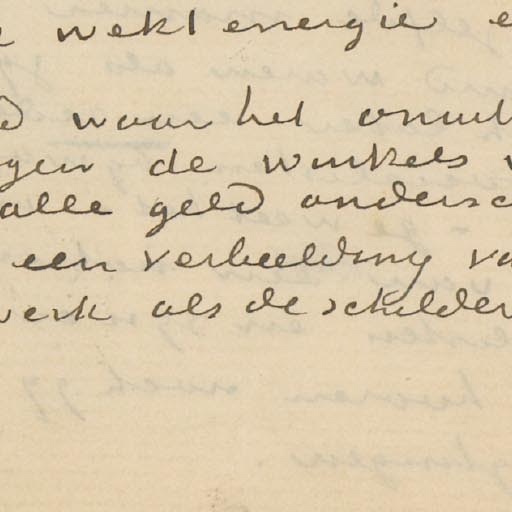 wekt energie e
waar het onuit
gen de winkels v
alle geld anders
een verbeelding va
werk als de schilder